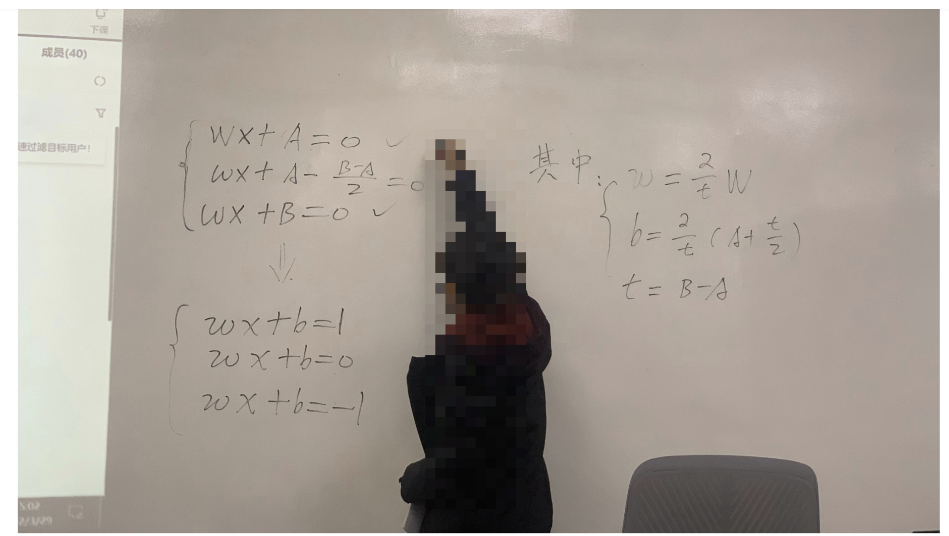 下课
成员(40)
速过滤目标用户!
WX+A=0 ✓
WX+A-\frac{B-A}{2}=0
WX+B=0 ✓
⇓
wx+b=1
wx+b=0
wx+b=-1
其中:
w=\frac{2}{t}W
b=\frac{2}{t}(A+\frac{t}{2})
t=B-A